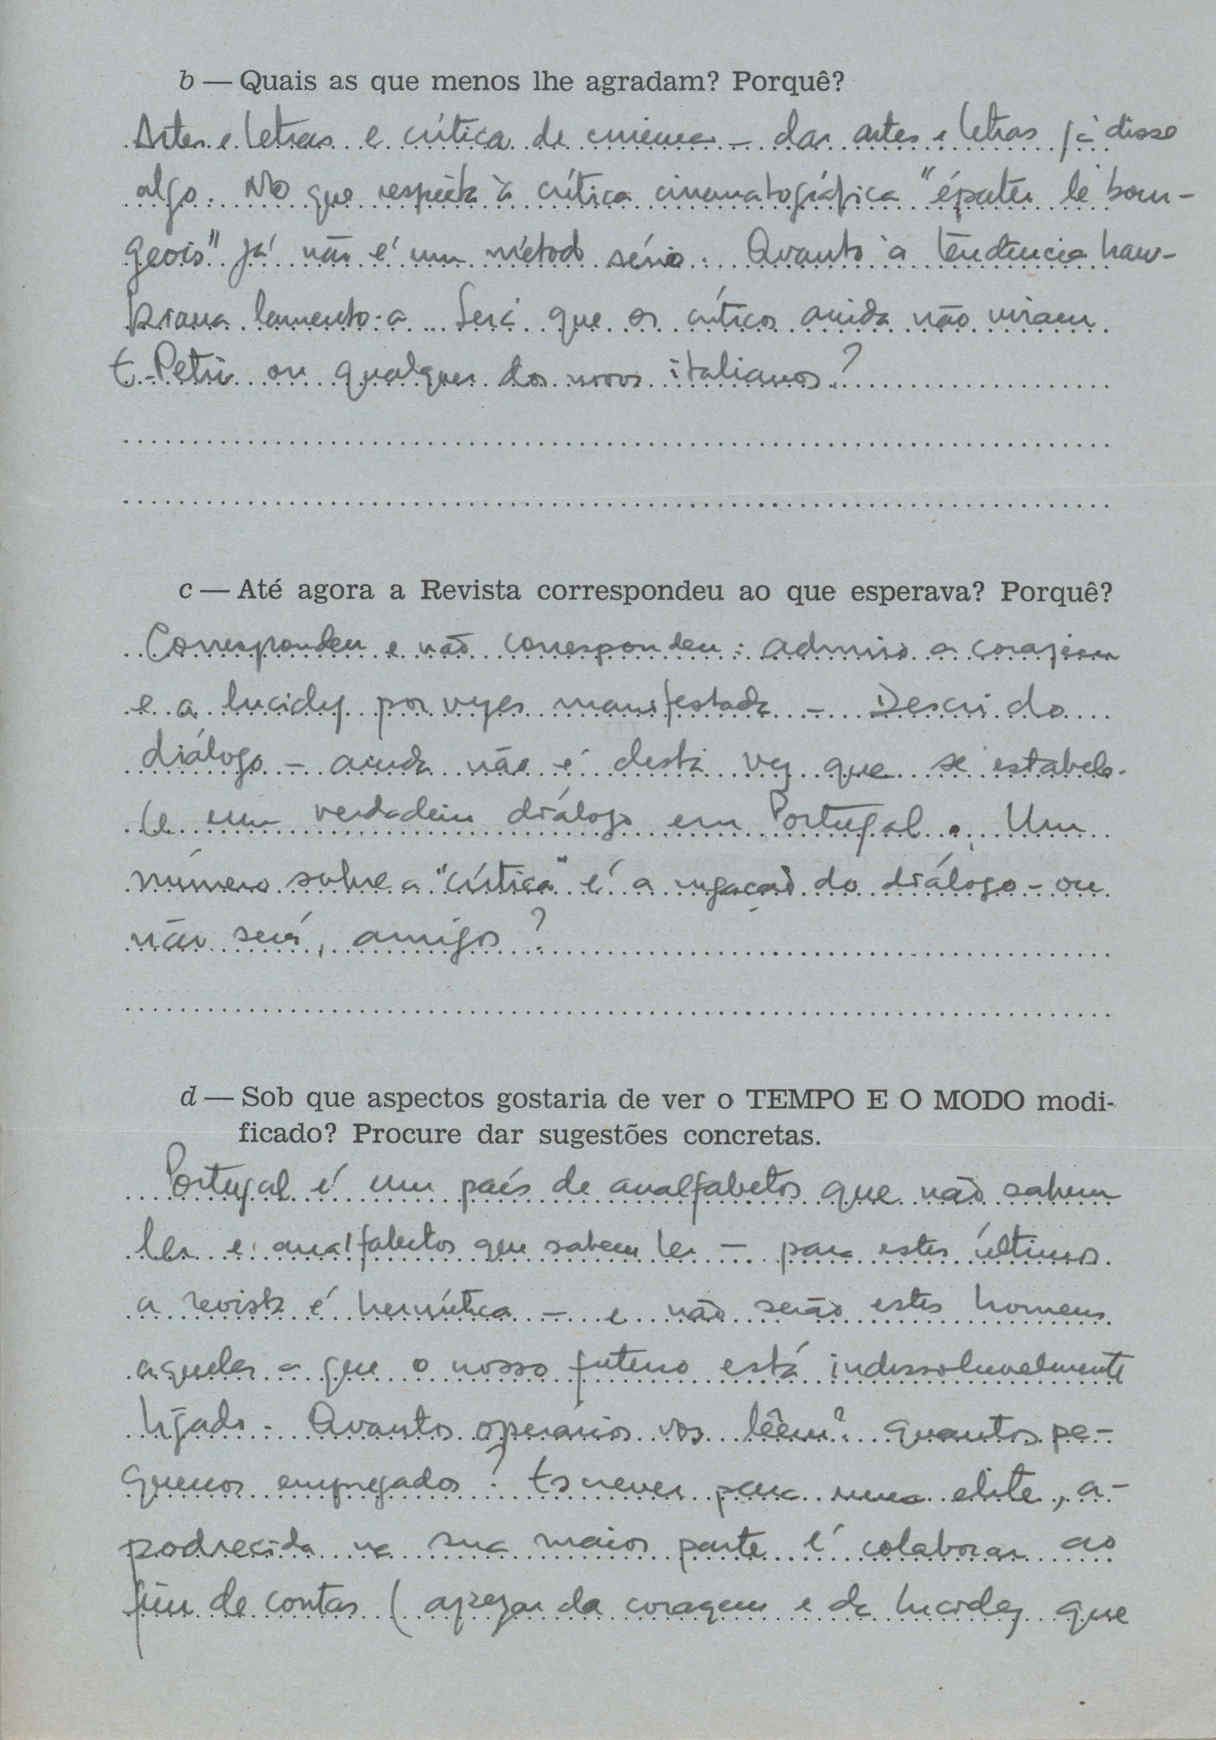 b — Quais as que menos lhe agradam? Porquê?
Artes e letras e crítica de cinema – das artes e letras já disse
algo. No que respeita à crítica cinematográfica "épater le bour-
geois" já não é um método sério. Quanto à tendência haw-
ksiana lamento-a. Será que os críticos ainda não viram
E. Petri ou qualquer dos novos italianos?
c — Até agora a Revista correspondeu ao que esperava? Porquê?
Correspondeu e não correspondeu: admiro a coragem
e a lucidez por vezes manifestada – Descri do
diálogo – ainda não é desta vez que se estabele-
ce um verdadeiro diálogo em Portugal. Um
número sobre a "crítica" é a negação do diálogo – ou
não será, amigos?
d — Sob que aspectos gostaria de ver o TEMPO E O MODO modi-
ficado? Procure dar sugestões concretas.
Portugal é um país de analfabetos que não sabem
ler e analfabetos que sabem ler – para estes últimos
a revista é hermética – e não serão estes homens
aqueles a que o nosso futuro está indissoluvelmente
ligado. Quantos operários vos lêem? quantos pe-
quenos empregados? Escrever para uma elite, a-
podrecida na sua maior parte é colaborar ao
fim de contas (apezar da coragem e da lucidez que